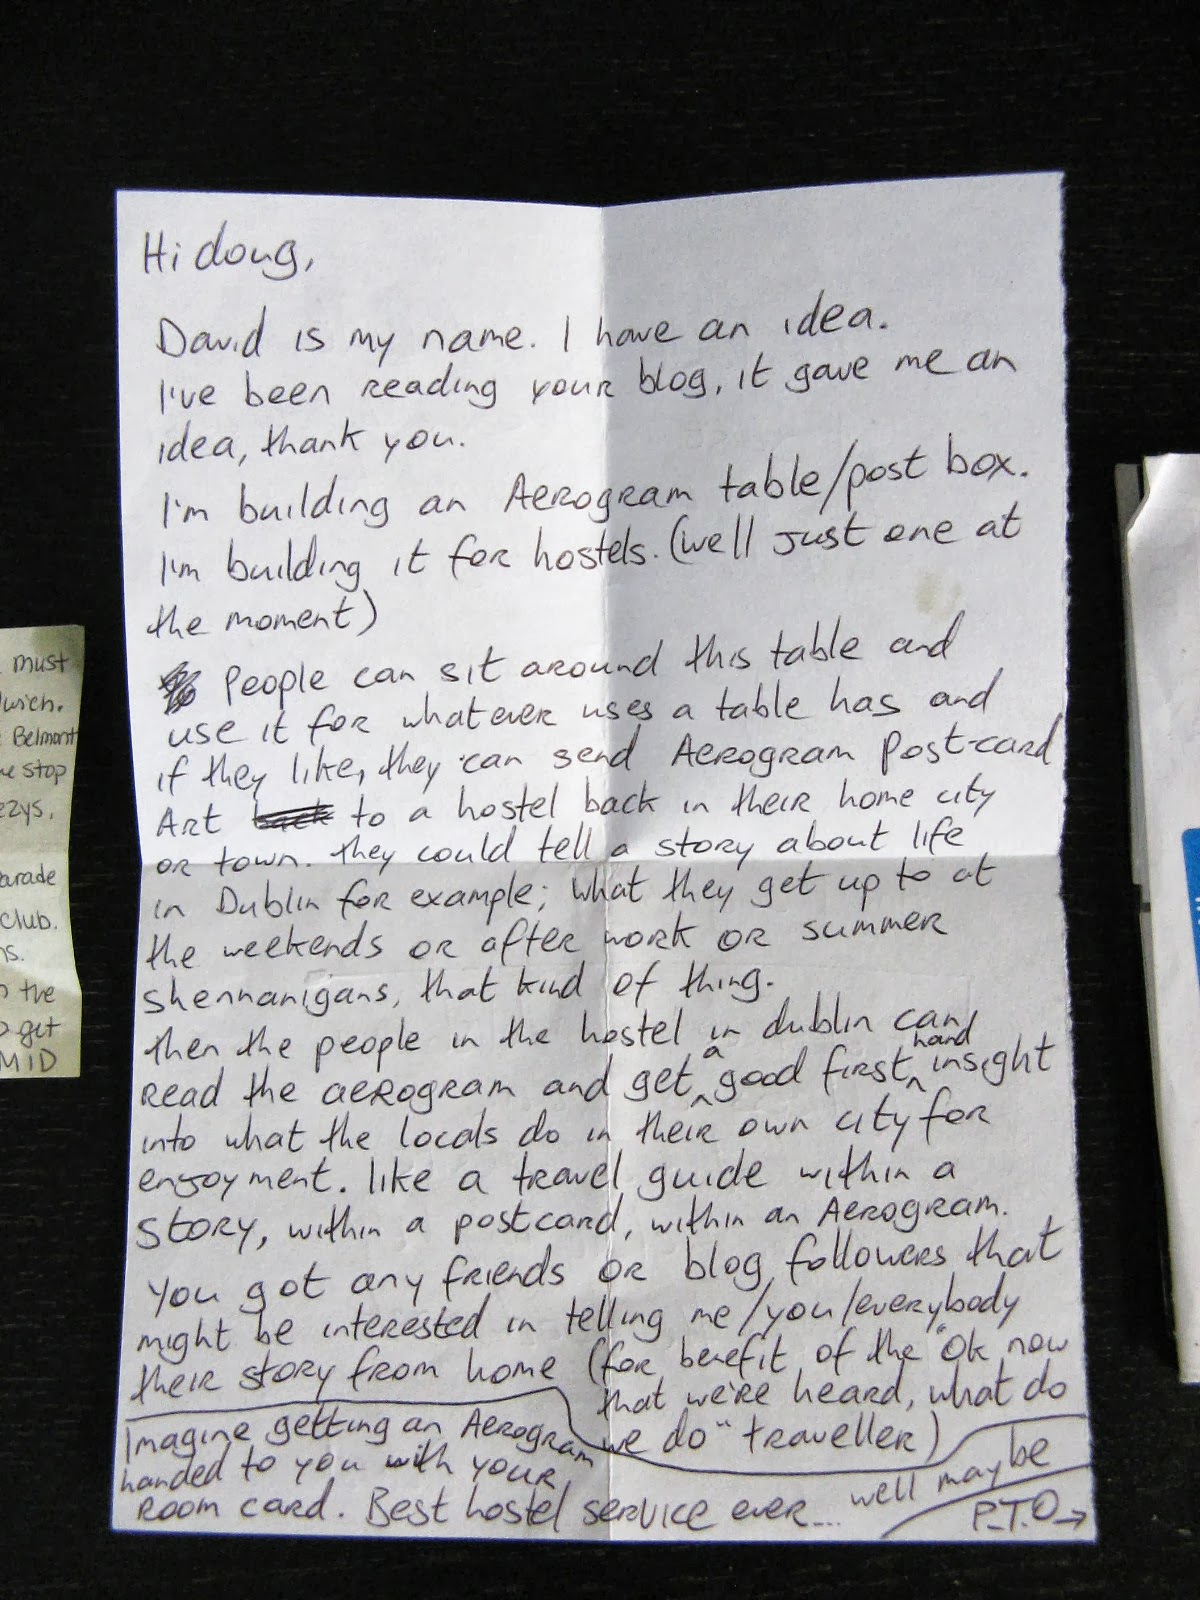 Hi doug,
David is my name. I have an idea.
I've been reading your blog, it gave me an
idea, thank you.
I'm building an Aerogram table/post box.
I'm building it for hostels. (well just one at
the moment)
People can sit around this table and
use it for whatever uses a table has and
if they like, they can send Aerogram Post-card
Art back to a hostel back in their home city
or town. they could tell a story about life
in Dublin for example; what they get up to at
the weekends or after work or summer
shennanigans, that kind of thing.
then the people in the hostel in dublin can
read the aerogram and get a good first hand insight
into what the locals do in their own city for
enjoyment. like a travel guide within a
story, within a postcard, within an Aerogram.
You got any friends or blog followers that
might be interested in telling me/you/everybody
their story from home (for benefit of the "Ok now
that we're heard, what do
we do" traveller)
Imagine getting an Aerogram
handed to you with your
room card. Best hostel service ever... well may be
P.T.O→
must
wich.
Belmont
stop
ezys.
arade
club.
ns.
the
get
MID